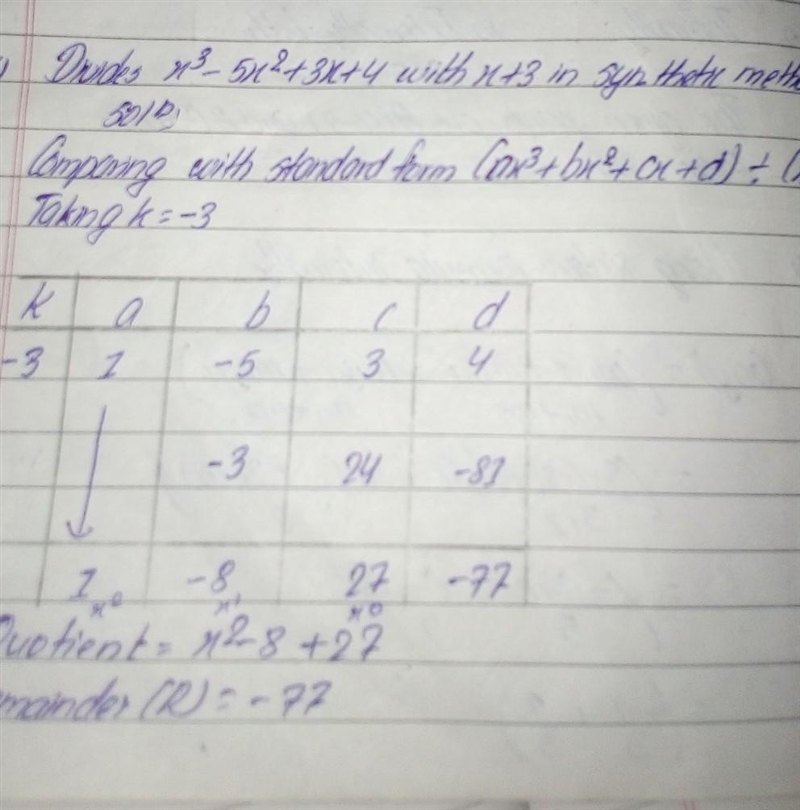 Divides x³-5x²+3x+4 with x+3 in synthetic meth
Solⁿ;
Comparing with standard form (ax³+bx²+cx+d) ÷ (
Taking k=-3
K a b c d
-3 1 -5 3 4
-3 24 -81
1 -8 27 -77
x⁰ x¹ x⁰
Quotient = x²-8+27
mainder (R) = -77